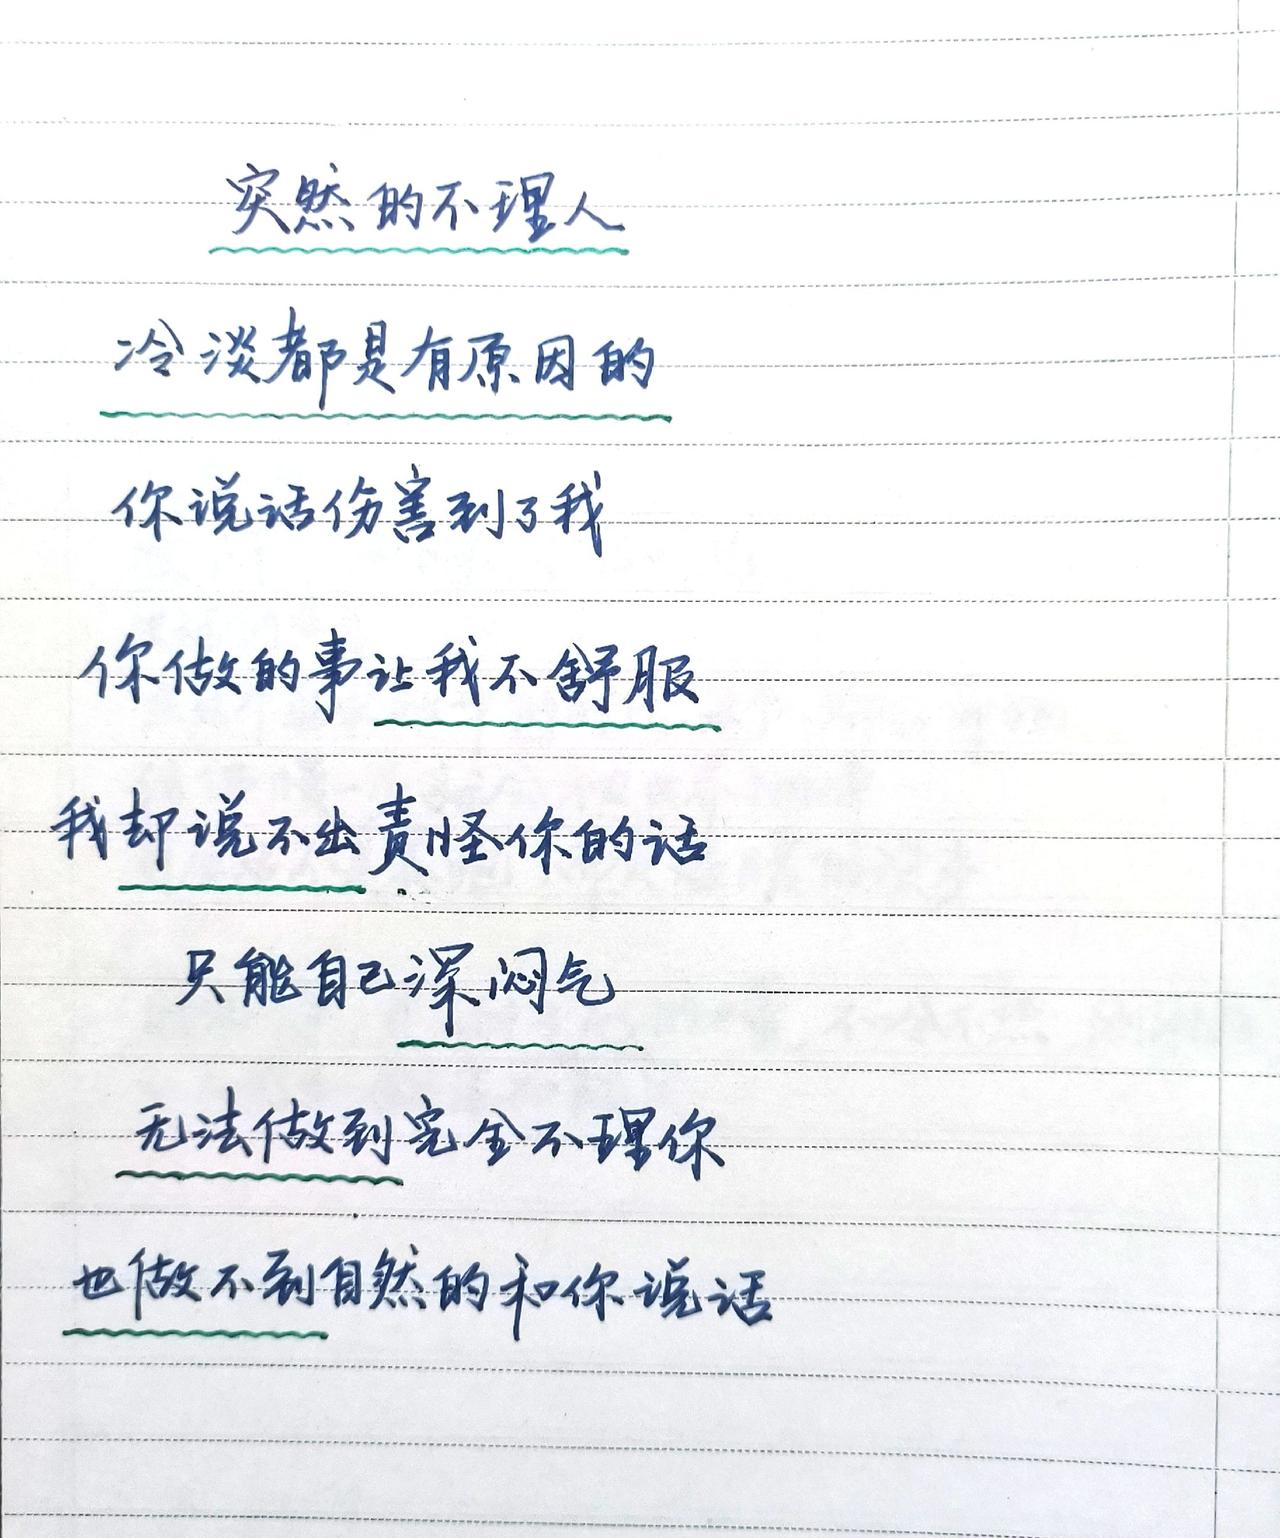 突然的不理人
冷淡都是有原因的
你说话伤害到了我
你做的事让我不舒服
我却说不出责怪你的话
只能自己深闷气
无法做到完全不理你
也做不到自然的和你说话